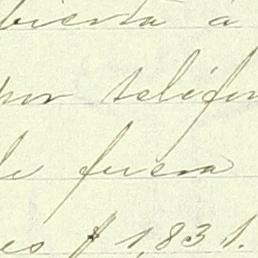 bierta a
por teléfon
de fuera
es $ 1,831.